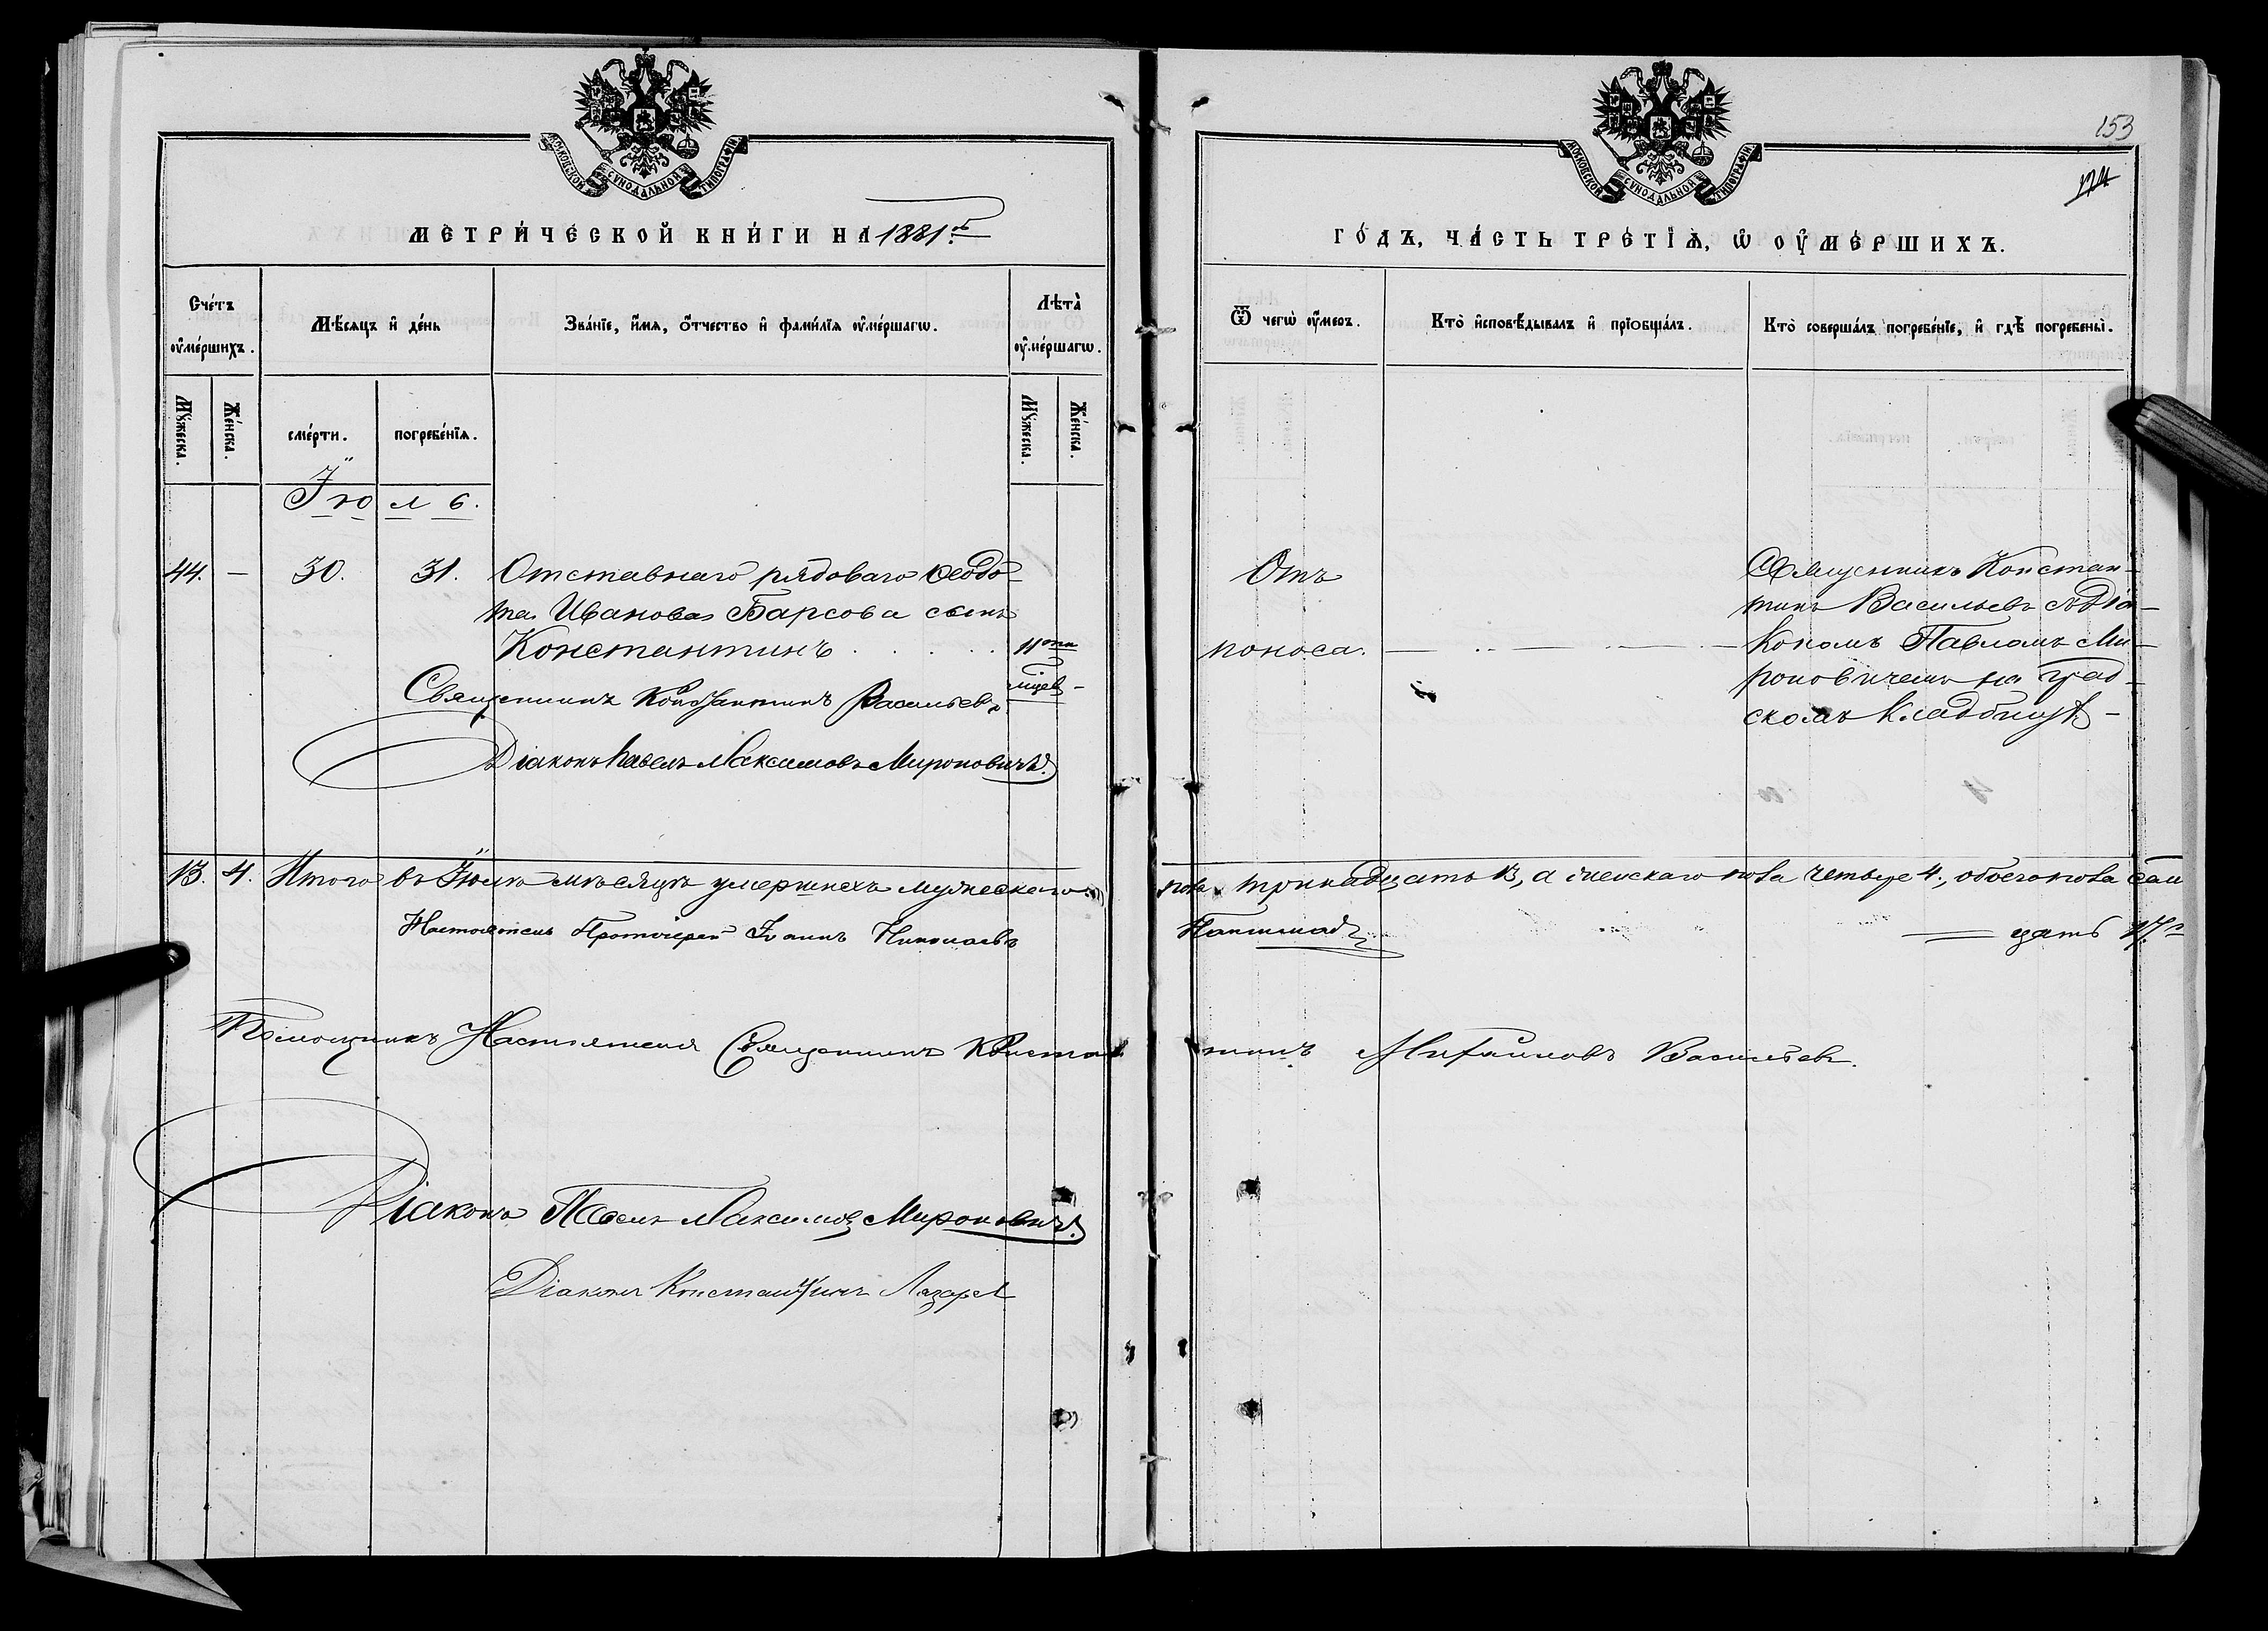 МОСКОВСКОЙ СУНОДАЛЬНОЙ ТИПОГРАФІИ
МЕТРИ́ЧЕСКОЙ КНИ́ГИ НА 1881 г.
Сче́тъ оу҆ме́ршихъ.
Мѣ́сяцъ и҆ де́нь
Зва́нїе, и҆́мя, ѻ҆́тчество и҆ фами́лїя оу҆ме́ршагѡ.
Лѣта̀ оу҆ме́ршагѡ.
Мꙋ́жеска.
Же́нска.
сме́рти.
погребе́нїѧ.
Мꙋ́жеска.
Же́нска.
Іюль.
44. — 30. 31. Отставнаго рядоваго Ѳеодо-
та Иванова Барсова сынъ
Константинъ . . . . . 11ти
мцев-
Священникъ Константинъ Васильевъ.
Діаконъ Павелъ Максимовъ Мироновичъ.
13. 4. Итого въ Іюлѣ мѣсяцѣ умершихъ мужескаго
Настоятель Протоіерей Іоаннъ Николаевъ
Помощникъ Настоятеля Священникъ Констан-
Діаконъ Павелъ Максимовъ Мироновичъ.
Діаконъ Константинъ Лазарев
МОСКОВСКОЙ СУНОДАЛЬНОЙ ТИПОГРАФІИ
153
ГО́ДЪ, ЧА́СТЬ ТРЕ́ТЇѦ, Ѡ҆ ОУ҆МЕ́РШИХЪ.
Ѿ чегѡ̀ оу҆́меръ.
Кто̀ и҆сповѣ́дывалъ и҆ прїобща́лъ.
Кто̀ соверша́лъ погребе́нїе, и҆ гдѣ̀ погребены̀.
Отъ
поноса.
Священникъ Констан-
тинъ Васильевъ съ діа-
кономъ Павломъ Ми-
роновичемъ на град-
скомъ кладбищѣ-
пола тринадцать 13, а женскаго пола четыре 4, обоего пола сем
надцать 17.
тинъ Митаиловъ Васильев.